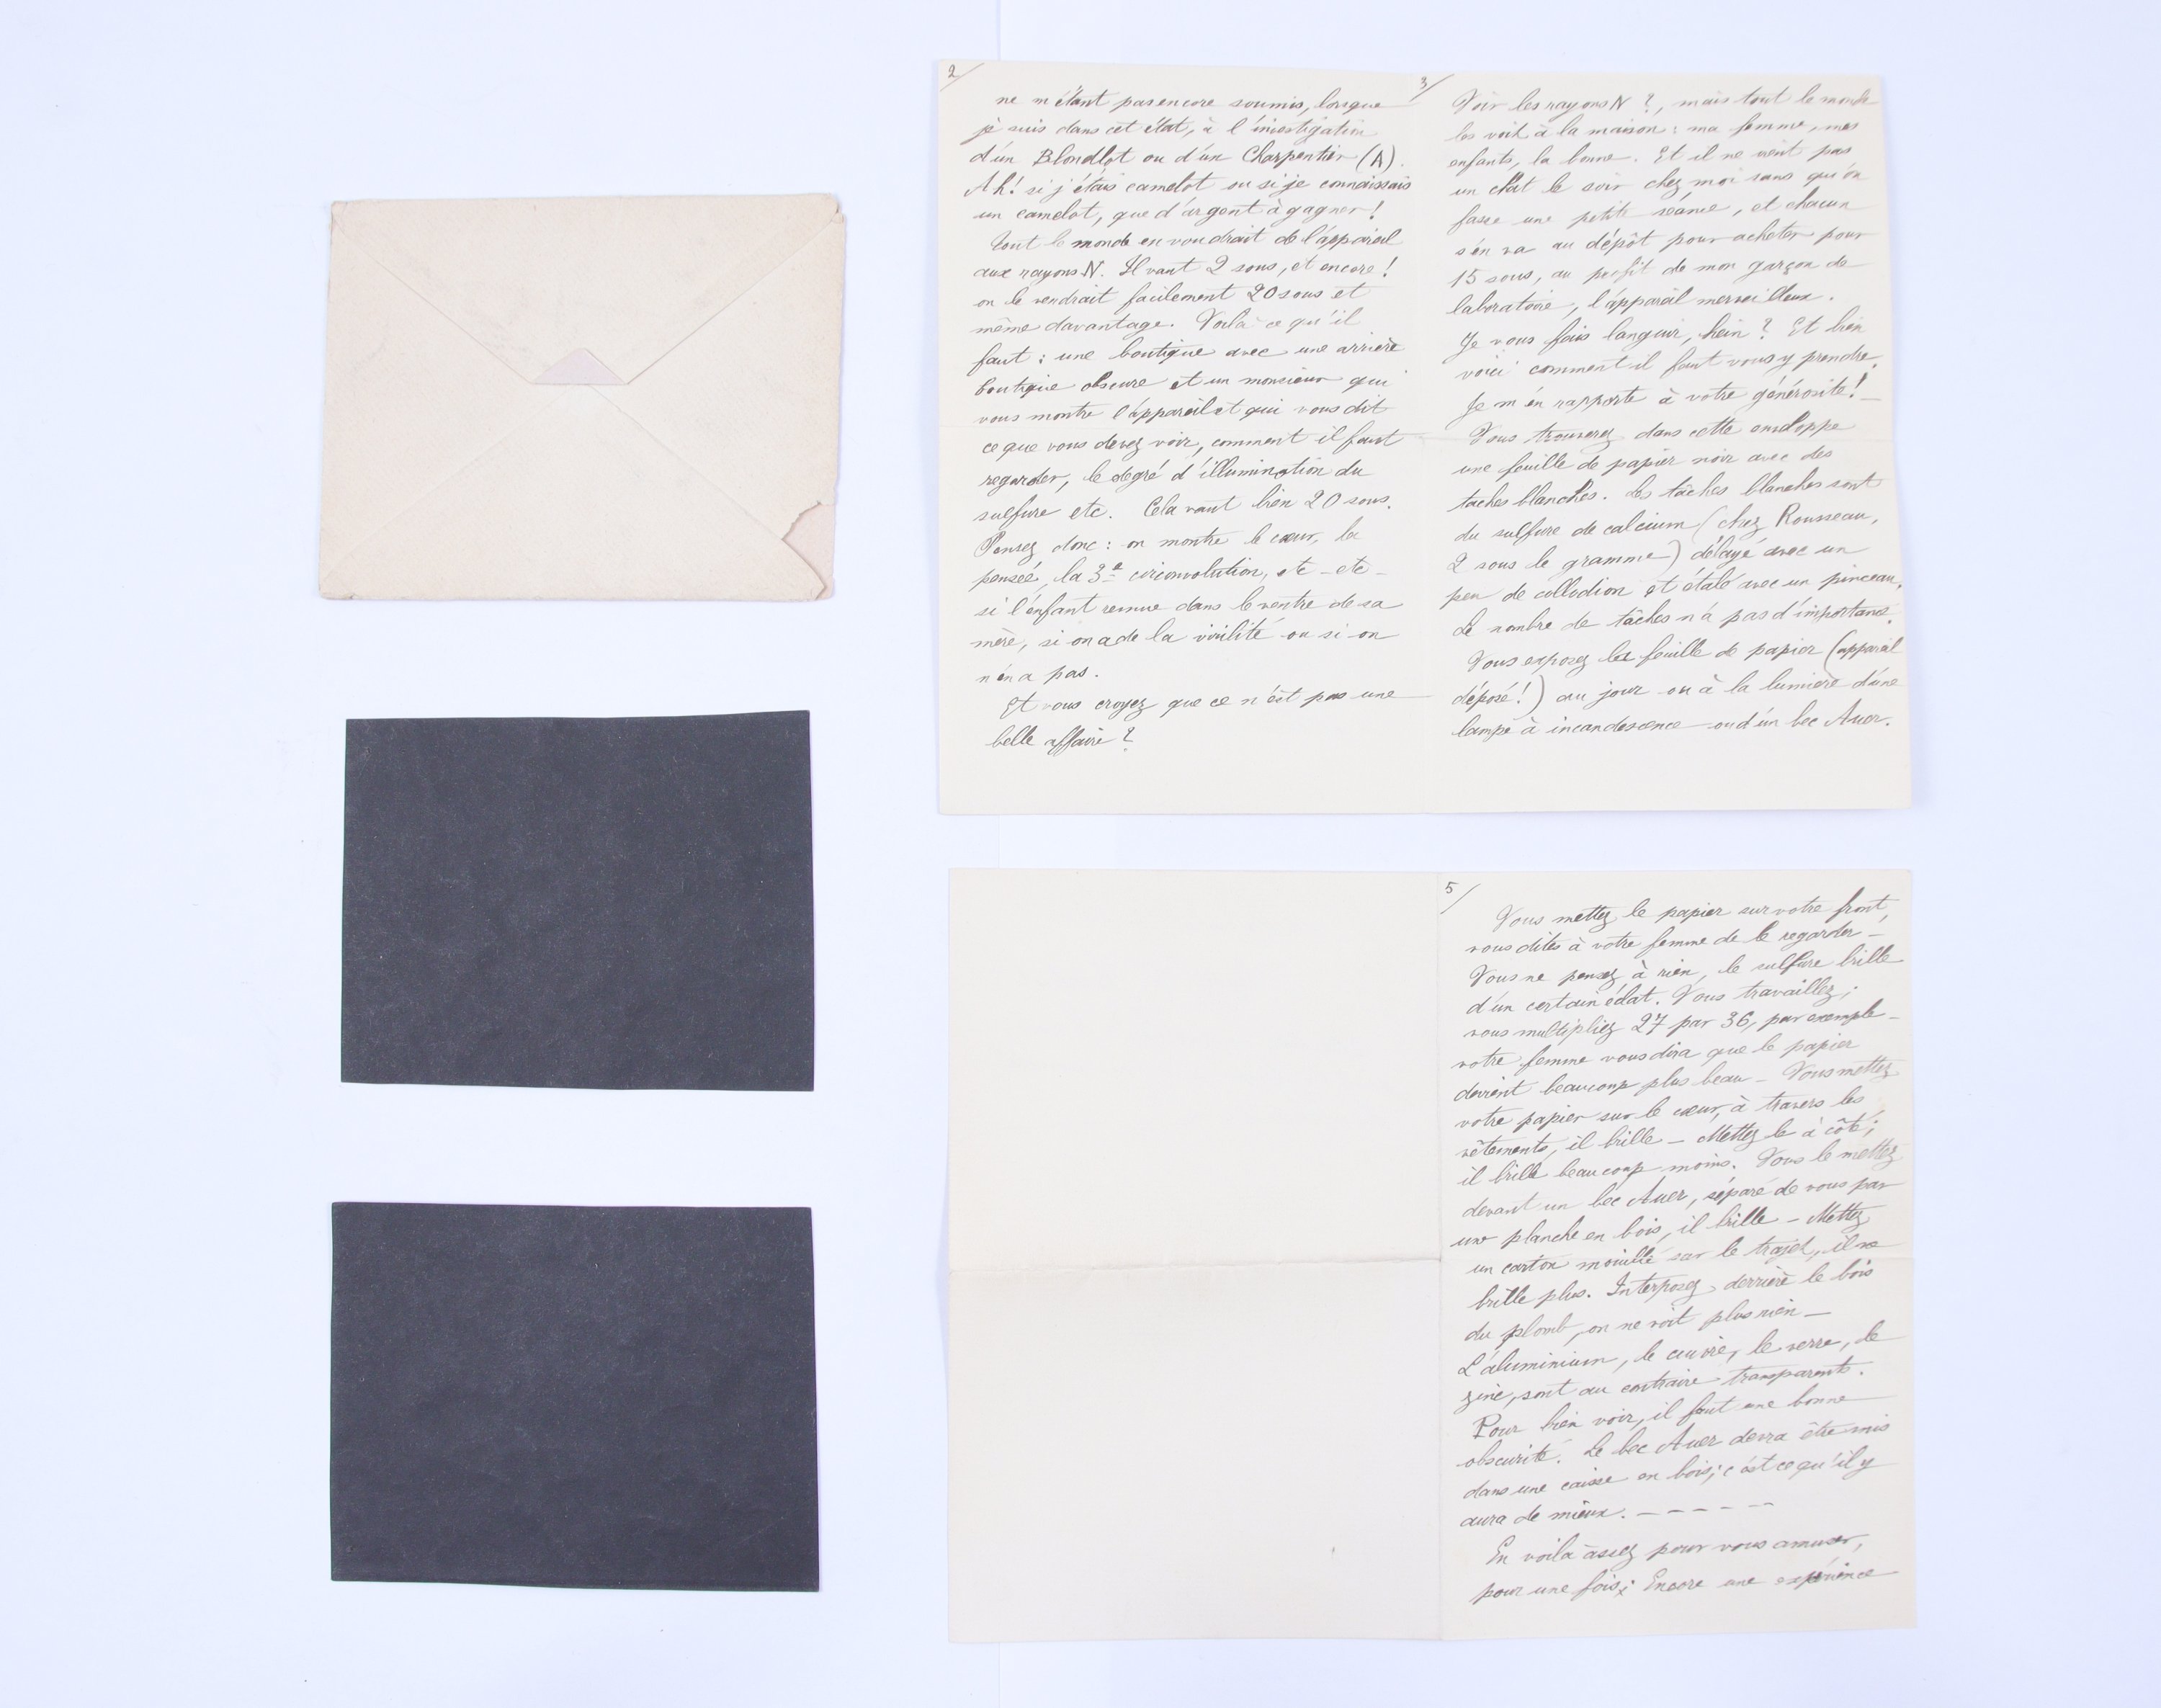 2/
ne m'étant pas encore soumis, lorsque
je suis dans cet état, à l'investigation
d'un Blondlot ou d'un Charpentier (A).
Ah! si j'étais camelot ou si je connaissais
un camelot, que d'argent à gagner!
Tout le monde en voudrait de l'appareil
aux rayons N. Il vaut 2 sous, et encore!
on le vendrait facilement 20 sous et
même davantage. Voilà ce qu'il
faut : une boutique avec une arrière
boutique obscure et un monsieur qui
vous montre l'appareil et qui vous dit
ce que vous devez voir, comment il faut
regarder, le degré d'illumination du
sulfure etc. Cela vaut bien 20 sous.
Pensez donc : on montre le cœur, la
pensée, la 3e circonvolution, etc - etc -
si l'enfant remue dans le ventre de sa
mère, si on a de la virilité ou si on
n'en a pas.
Et vous croyez que ce n'est pas une
belle affaire?
3/
Voir les rayons N ?, mais tout le monde
les voit à la maison : ma femme, mes
enfants, la bonne. Et il ne vient pas
un chat le soir chez moi sans qu'on
fasse une petite séance, et chacun
s'en va au dépôt pour acheter pour
15 sous, au profit de mon garçon de
laboratoire, l'appareil merveilleux.
Je vous fais languir, hein? Et bien
voici comment il faut vous y prendre.
Je m'en rapporte à votre générosité! -
Vous trouverez dans cette enveloppe
une feuille de papier noir avec des
taches blanches. Les tâches blanches sont
du sulfure de calcium (chez Rousseau,
2 sous le gramme) délayé avec un
peu de collodion et étalé avec un pinceau.
Le nombre de tâches n'a pas d'importance.
Vous exposez la feuille de papier (appareil
déposé!) au jour ou à la lumière d'une
lampe à incandescence ou d'un bec Auer.
5/
Vous mettez le papier sur votre front,
vous dites à votre femme de le regarder -
Vous ne pensez à rien, le sulfure brille
d'un certain éclat. Vous travaillez;
vous multipliez 27 par 36, par exemple -
votre femme vous dira que le papier
devient beaucoup plus beau - Vous mettez
votre papier sur le cœur, à travers les
vêtements, il brille - Mettez le à côté;
il brille beaucoup moins. Vous le mettez
devant un bec Auer, séparé de vous par
une planche en bois, il brille - Mettez
un carton mouillé sur le trajet, il ne
brille plus. Interposez derrière le bois
du plomb, on ne voit plus rien -
L'aluminium, le cuivre, le verre, le
zinc, sont au contraire transparents.
Pour bien voir, il faut une bonne
obscurité. Le bec Auer devra être mis
dans une caisse en bois; c'est ce qu'il y
aura de mieux. - - - - -
En voilà assez pour vous amuser,
pour une fois; Encore une expérience